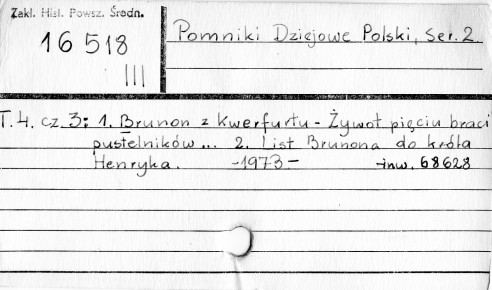 Zakł. Hist. Powsz. Średn.
16 518
III
Pomniki Dziejowe Polski, Ser. 2
T. 4. cz. 3: 1. Brunon z Kwerfurtu - Żywot pięciu braci
pustelników... 2. List Brunona do króla
Henryka. -1973- -inw. 68628